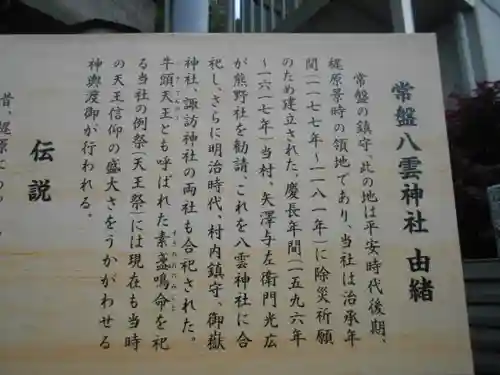 常盤八雲神社 由緒
常盤の鎮守。此の地は平安時代後期、
梶原景時の領地であり、当社は治承年
間(一一七七年～一一八一年)に除災祈願
のため建立された。慶長年間(一五九六年
～一六一七年)当村、矢澤与左衛門光広
が熊野社を勧請、これを八雲神社に合
祀し、さらに明治時代、村内鎮守、御嶽
神社、諏訪神社の両社も合祀された。
牛頭天王とも呼ばれた素盞鳴命を祀
る当社の例祭(天王祭)には現在も当時
の天王信仰の盛大さをうかがわせる
神輿渡御が行われる。
伝説
昔、梶原